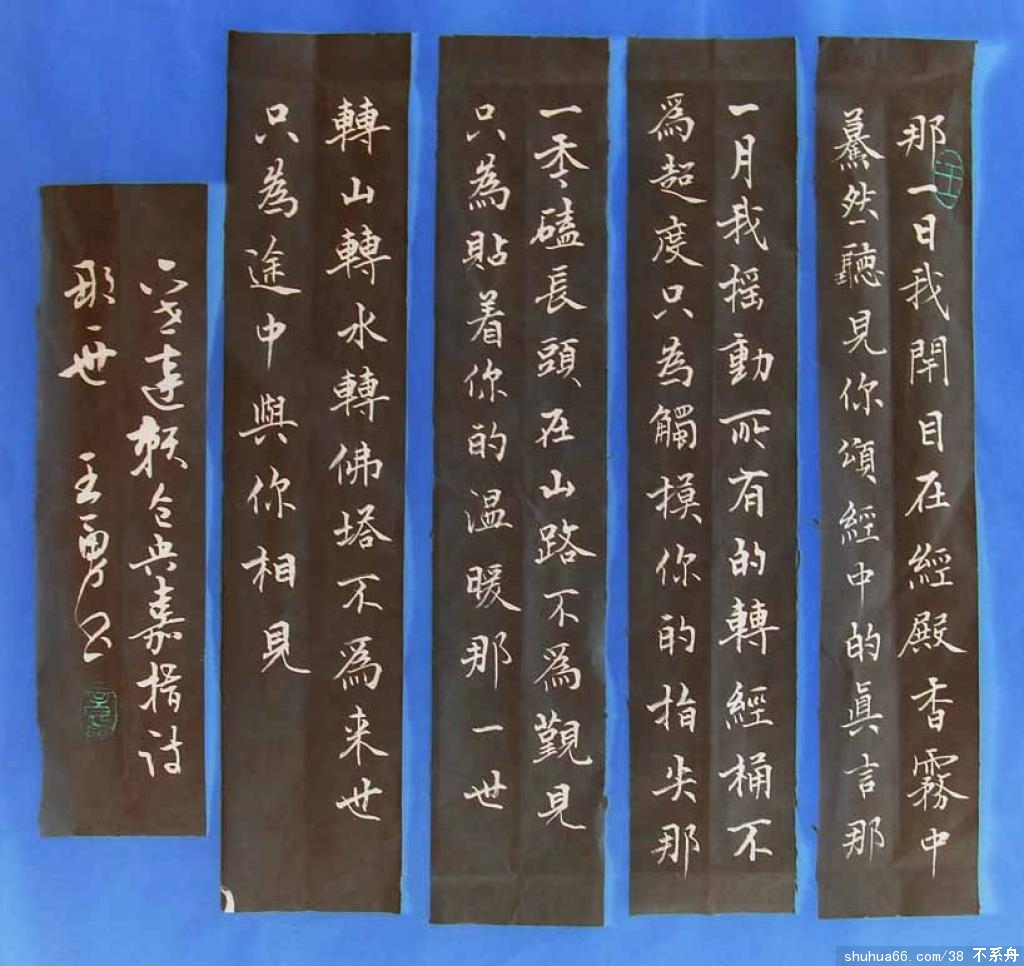 那一日我閉目在經殿香霧中
驀然聽見你頌經中的眞言那
一月我摇動所有的轉經桶不
爲超度只为觸摸你的指尖那
一秊磕長頭在山路不爲覲見
只為貼着你的温暖那一世
轉山轉水轉佛塔不爲来世
只為途中與你相見
六世達賴仓央嘉措诗
那一世 王勇书
shuhua66.com/38 不系舟